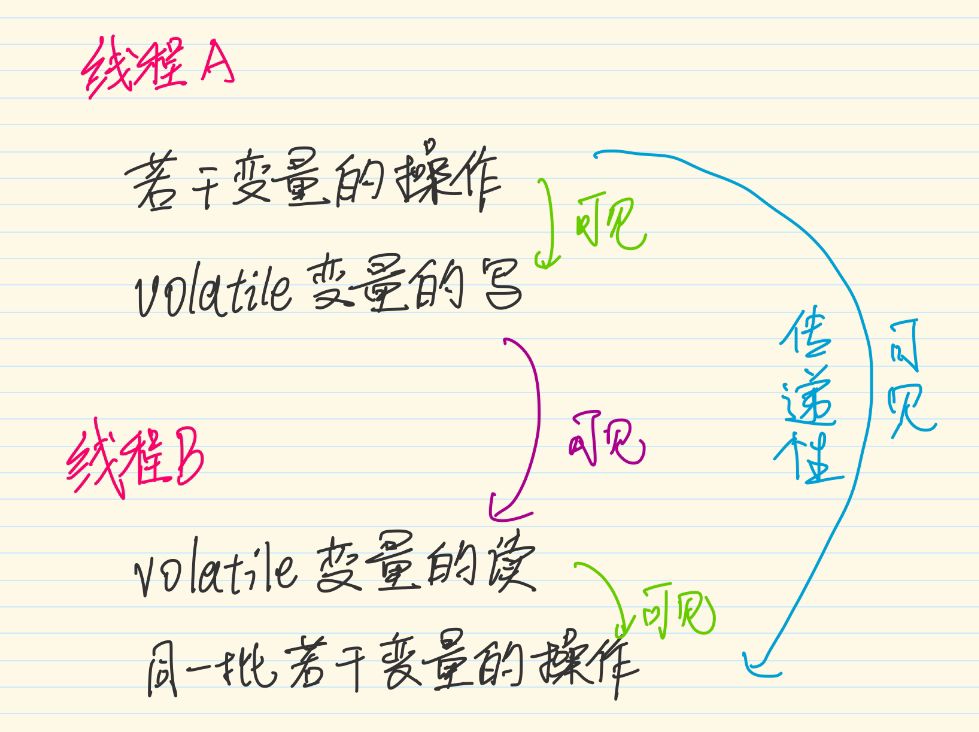 线程A
若干变量的操作
可见
volatile变量的写
传递性
可见
可见
线程B
volatile变量的读
可见
同一批若干变量的操作